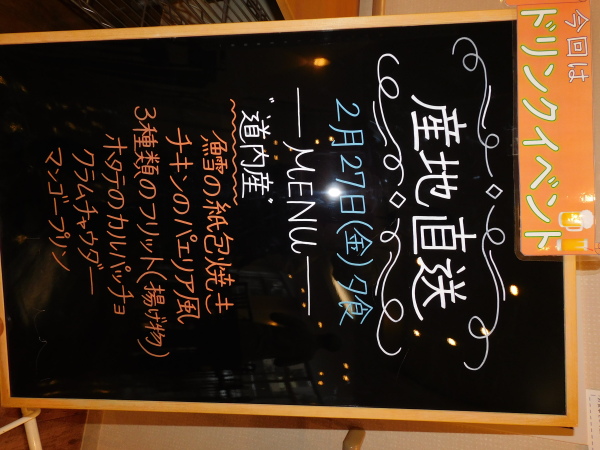 今回は
ドリンクイベント
産地直送
2月27日(金)夕食
MENU
"道内産"
鱈の紙包焼き
チキンのパエリア風
3種類のフリット(揚げ物)
ホタテのカルパッチョ
クラムチャウダー
マンゴープリン